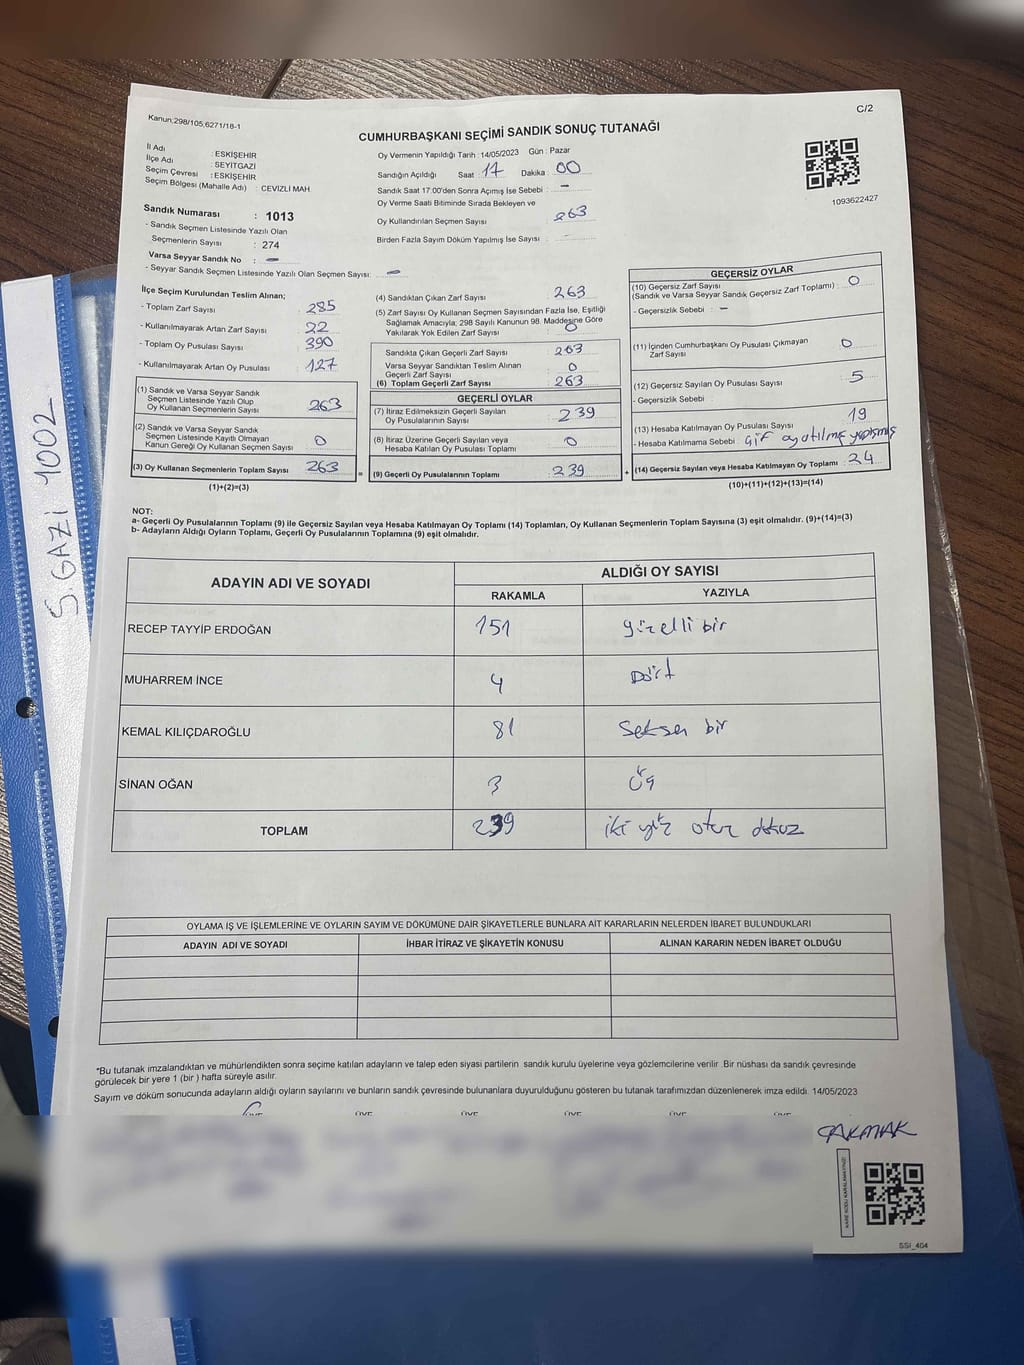 Kanun;298/105,6271/18-1
C/2
CUMHURBAŞKANI SEÇİMİ SANDIK SONUÇ TUTANAĞI
İl Adı : ESKİŞEHİR
İlçe Adı : SEYİTGAZİ
Seçim Çevresi : ESKİŞEHİR
Seçim Bölgesi (Mahalle Adı) : CEVİZLİ MAH
Oy Vermenin Yapıldığı Tarih : 14/05/2023 Gün : Pazar
Sandığın Açıldığı Saat : 17 Dakika : 00
Sandık Saat 17:00'den Sonra Açımış İse Sebebi : –
Oy Verme Saati Bitiminde Sırada Bekleyen ve
Oy Kullandırılan Seçmen Sayısı : 263
Birden Fazla Sayım Döküm Yapılmış İse Sayısı :
1093622427
Sandık Numarası : 1013
- Sandık Seçmen Listesinde Yazılı Olan
Seçmenlerin Sayısı : 274
Varsa Seyyar Sandık No : –
- Seyyar Sandık Seçmen Listesinde Yazılı Olan Seçmen Sayısı: –
İlçe Seçim Kurulundan Teslim Alınan;
- Toplam Zarf Sayısı : 285
- Kullanılmayarak Artan Zarf Sayısı : 22
- Toplam Oy Pusulası Sayısı : 390
- Kullanılmayarak Artan Oy Pusulası : 127
(1) Sandık ve Varsa Seyyar Sandık
Seçmen Listesinde Yazılı Olup
Oy Kullanan Seçmenlerin Sayısı : 263
(2) Sandık ve Varsa Seyyar Sandık
Seçmen Listesinde Kayıtlı Olmayan
Kanun Gereği Oy Kullanan Seçmen Sayısı : 0
(3) Oy Kullanan Seçmenlerin Toplam Sayısı : 263
(1)+(2)=(3)
(4) Sandıktan Çıkan Zarf Sayısı : 263
(5) Zarf Sayısı Oy Kullanan Seçmen Sayısından Fazla İse, Eşitliği
Sağlamak Amacıyla; 298 Sayılı Kanunun 98. Maddesine Göre
Yakılarak Yok Edilen Zarf Sayısı : 0
Sandıkta Çıkan Geçerli Zarf Sayısı : 263
Varsa Seyyar Sandıktan Teslim Alınan
Geçerli Zarf Sayısı : 0
(6) Toplam Geçerli Zarf Sayısı : 263
GEÇERLİ OYLAR
(7) İtiraz Edilmeksizin Geçerli Sayılan
Oy Pusulalarının Sayısı : 239
(8) İtiraz Üzerine Geçerli Sayılan veya
Hesaba Katılan Oy Pusulası Toplamı : 0
(9) Geçerli Oy Pusulalarının Toplamı : 239
GEÇERSİZ OYLAR
(10) Geçersiz Zarf Sayısı : 0
(Sandık ve Varsa Seyyar Sandık Geçersiz Zarf Toplamı)
- Geçersizlik Sebebi : –
(11) İçinden Cumhurbaşkanı Oy Pusulası Çıkmayan
Zarf Sayısı : 0
(12) Geçersiz Sayılan Oy Pusulası Sayısı : 5
- Geçersizlik Sebebi
(13) Hesaba Katılmayan Oy Pusulası Sayısı : 19
- Hesaba Katılmama Sebebi :
(14) Geçersiz Sayılan veya Hesaba Katılmayan Oy Toplamı : 24
(10)+(11)+(12)+(13)=(14)
NOT:
a- Geçerli Oy Pusulalarının Toplamı (9) ile Geçersiz Sayılan veya Hesaba Katılmayan Oy Toplamı (14) Toplamları, Oy Kullanan Seçmenlerin Toplam Sayısına (3) eşit olmalıdır. (9)+(14)=(3)
b- Adayların Aldığı Oyların Toplamı, Geçerli Oy Pusulalarının Toplamına (9) eşit olmalıdır.
ADAYIN ADI VE SOYADI ALDIĞI OY SAYISI
RAKAMLA YAZIYLA
RECEP TAYYİP ERDOĞAN 151 yüzelli bir
MUHARREM İNCE 4 Dört
KEMAL KILIÇDAROĞLU 81 Seksen bir
SİNAN OĞAN 3 Üç
TOPLAM 239 iki yüz otuz dokuz
OYLAMA İŞ VE İŞLEMLERİNE VE OYLARIN SAYIM VE DÖKÜMÜNE DAİR ŞİKAYETLERLE BUNLARA AİT KARARLARIN NELERDEN İBARET BULUNDUKLARI
ADAYIN ADI VE SOYADI İHBAR İTİRAZ VE ŞİKAYETİN KONUSU ALINAN KARARIN NEDEN İBARET OLDUĞU
*Bu tutanak imzalandıktan ve mühürlendikten sonra seçime katılan adayların ve talep eden siyasi partilerin sandık kurulu üyelerine veya gözlemcilerine verilir. Bir nüshası da sandık çevresinde
görülecek bir yere 1 (bir ) hafta süreyle asılır.
Sayım ve döküm sonucunda adayların aldığı oyların sayılarını ve bunların sandık çevresinde bulunanlara duyurulduğunu gösteren bu tutanak tarafımızdan düzenlenerek imza edildi. 14/05/2023
ÇAKMAK
KARE KODU KARALAMAYINIZ!
SSİ_464
S.GAZİ 1002